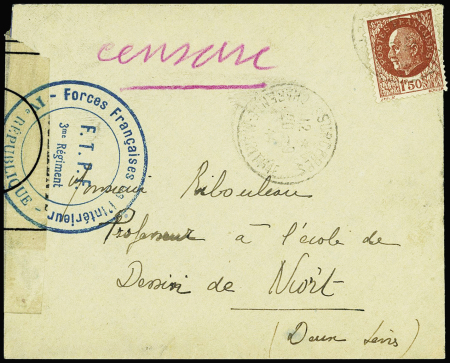 censure
POSTES FRANÇAISES
1F50
IVe RÉPUBLIQUE - Forces Françaises de l'Intérieur
F.T.P.F
3me Régiment
Monsieur Ribouleau
Professeur à l'école de
Dessin de Niort
(Deux Sèvres)